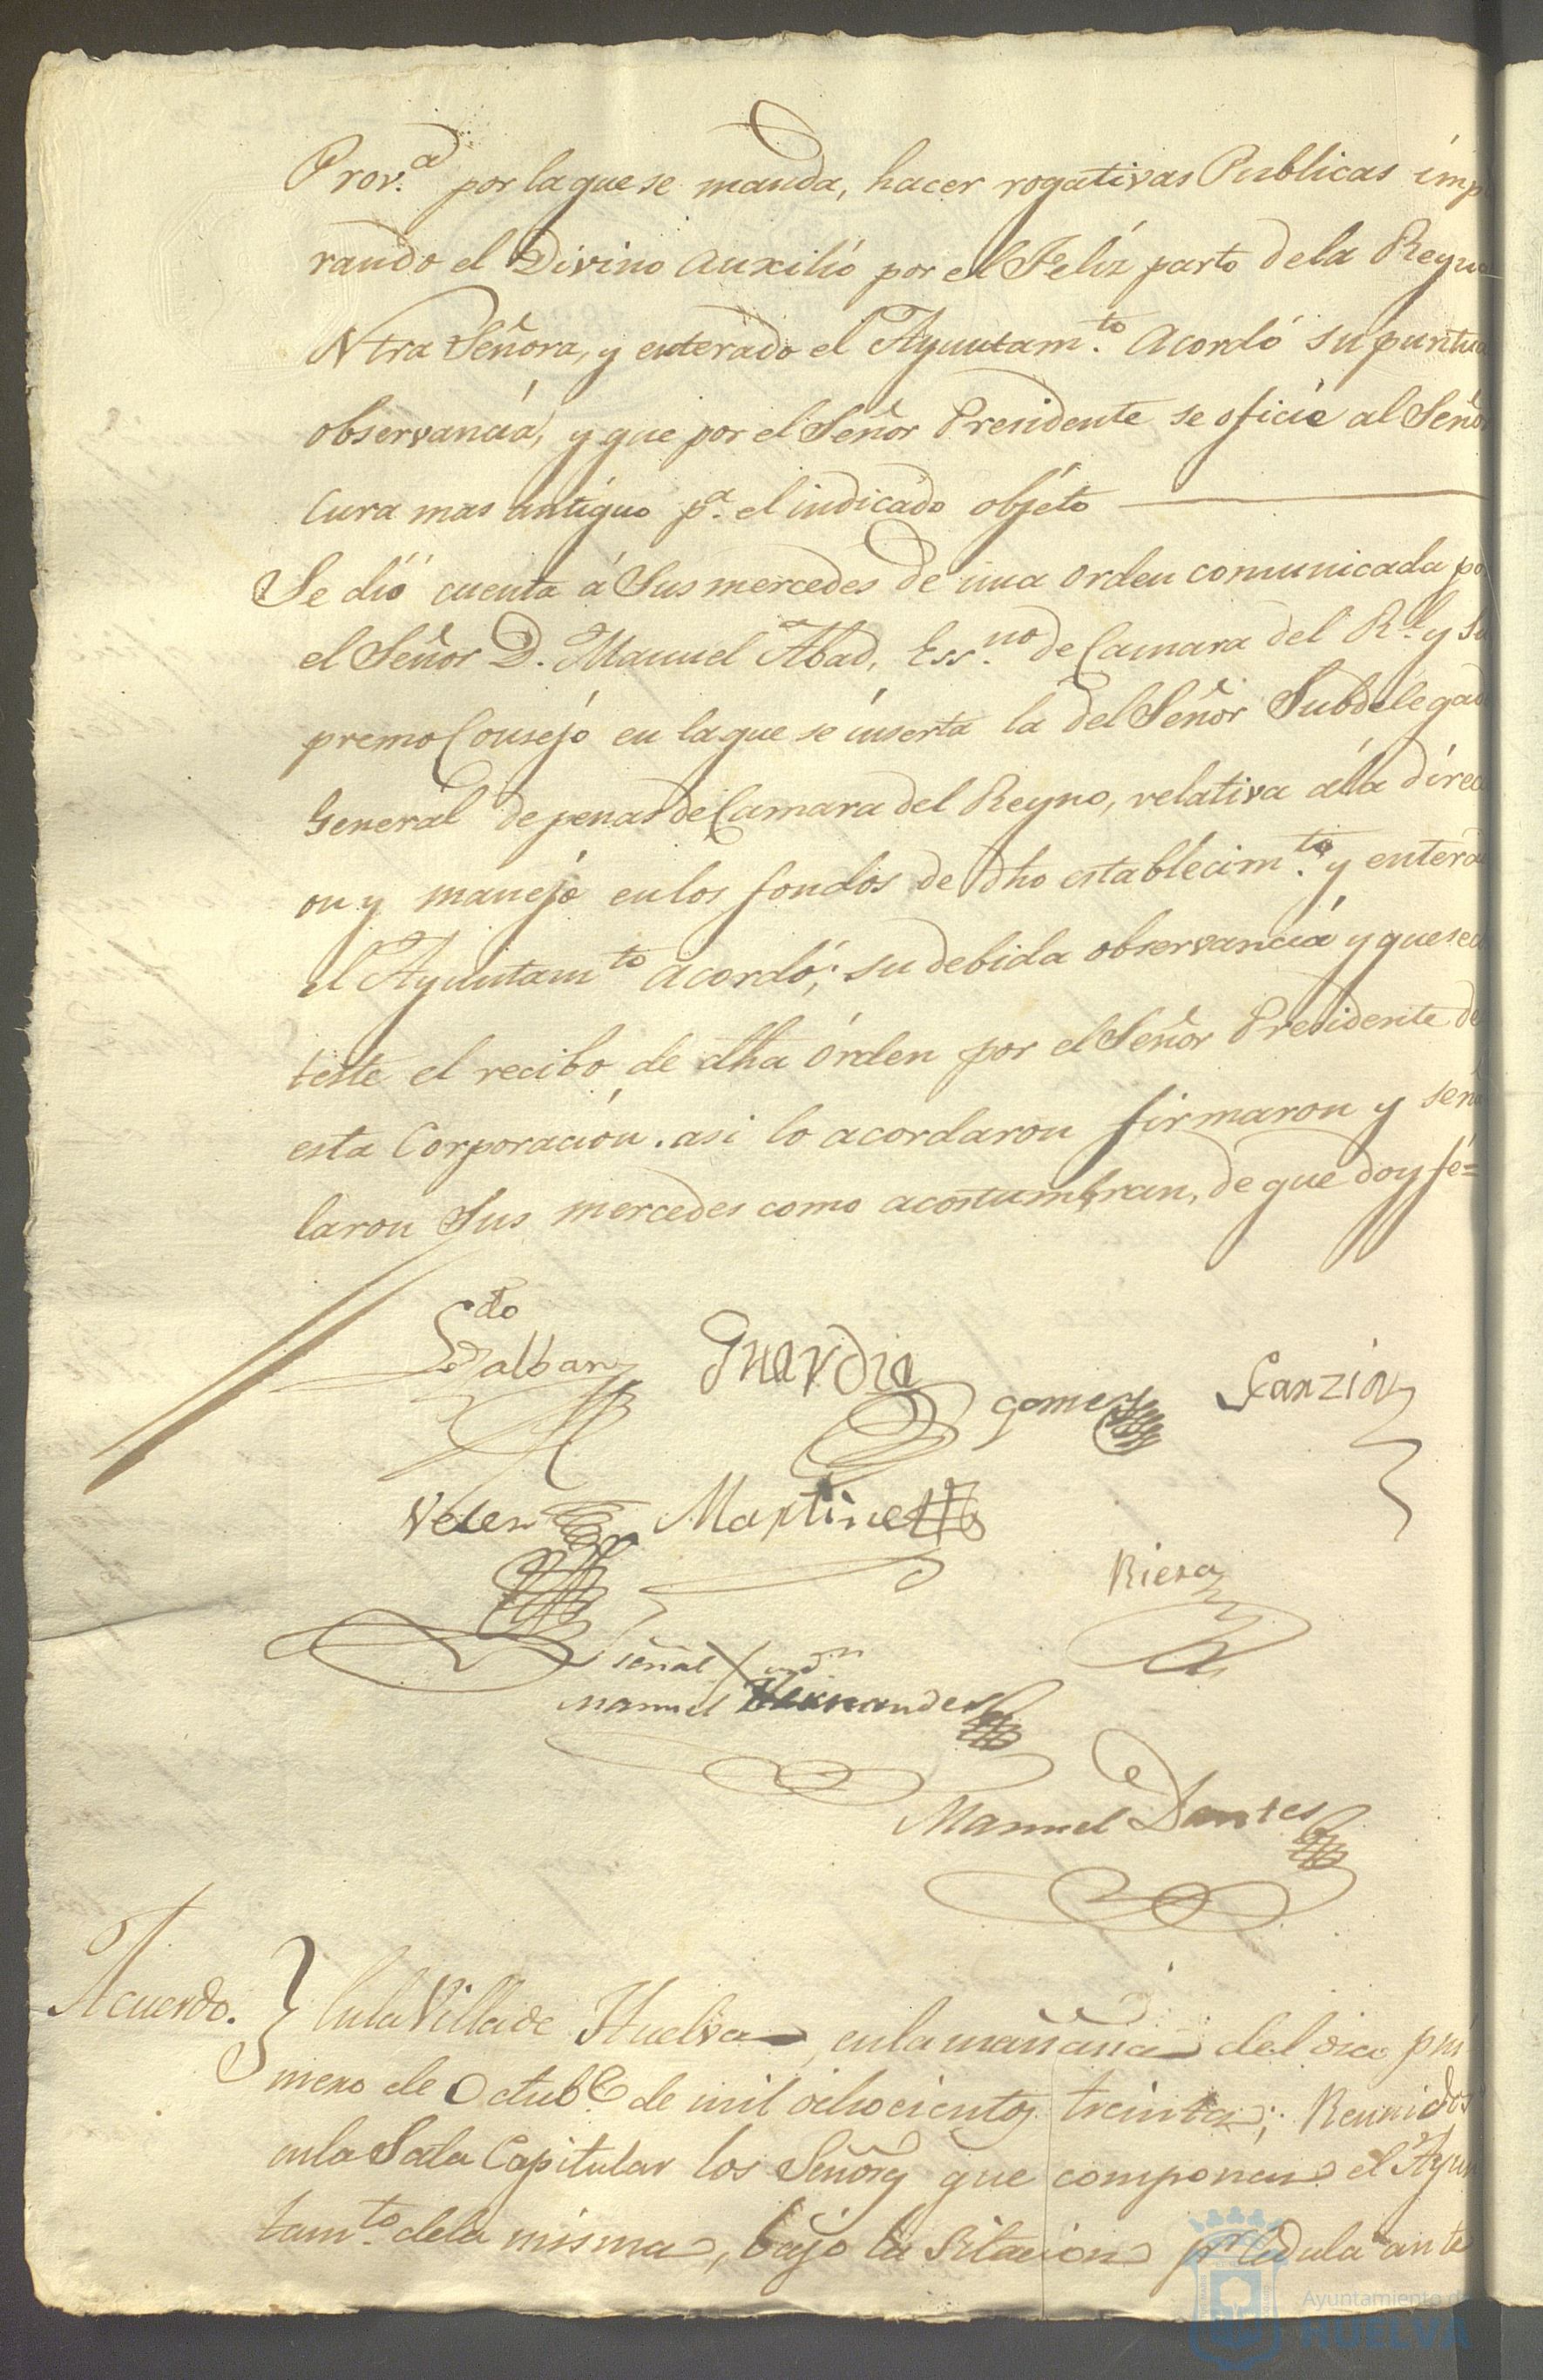 Prov.ª por la que se manda, hacer rogativas Publicas imp
rando el Divino Auxilio por el Feliz parto de la Reyna
Ntra Señora, y enterado el Ayuntam.to Acordó su puntua
observancia, y que por el Señor Presidente se oficie al Señor
Cura mas antiguo p.ª el indicado objeto
Se dió cuenta á Sus mercedes de una orden comunicada po
el Señor D. Manuel Abad, Ess.no de Camara del R.l y Su
premo Consejo en la que se inserta la del Señor Subdelegad
General de penas de Camara del Reyno, relativa á la direc
on y manejo en los fondos de dho establecim.to y enterad
el Ayuntam.to acordó; su debida observancia y que se co
teste el recibo de dha orden por el Señor Presidente de
esta Corporacion. asi lo acordaron firmaron y señ
laron Sus mercedes como acostumbran, de que doy fé=
Guardia
Gomez
Velez Martinez
Riera
señal X
Manuel Hernandez
Manuel Dantes
Acuerdo.
En la Villa de Huelva, en la mañana del dia pri
mero de Octub.e de mil ochocientos treinta; Reunidos
en la Sala Capitular los Señores que componen el Ayun
tam.to de la misma, bajo la sitacion p.r Cedula ante
Ayuntamiento de
HUELVA